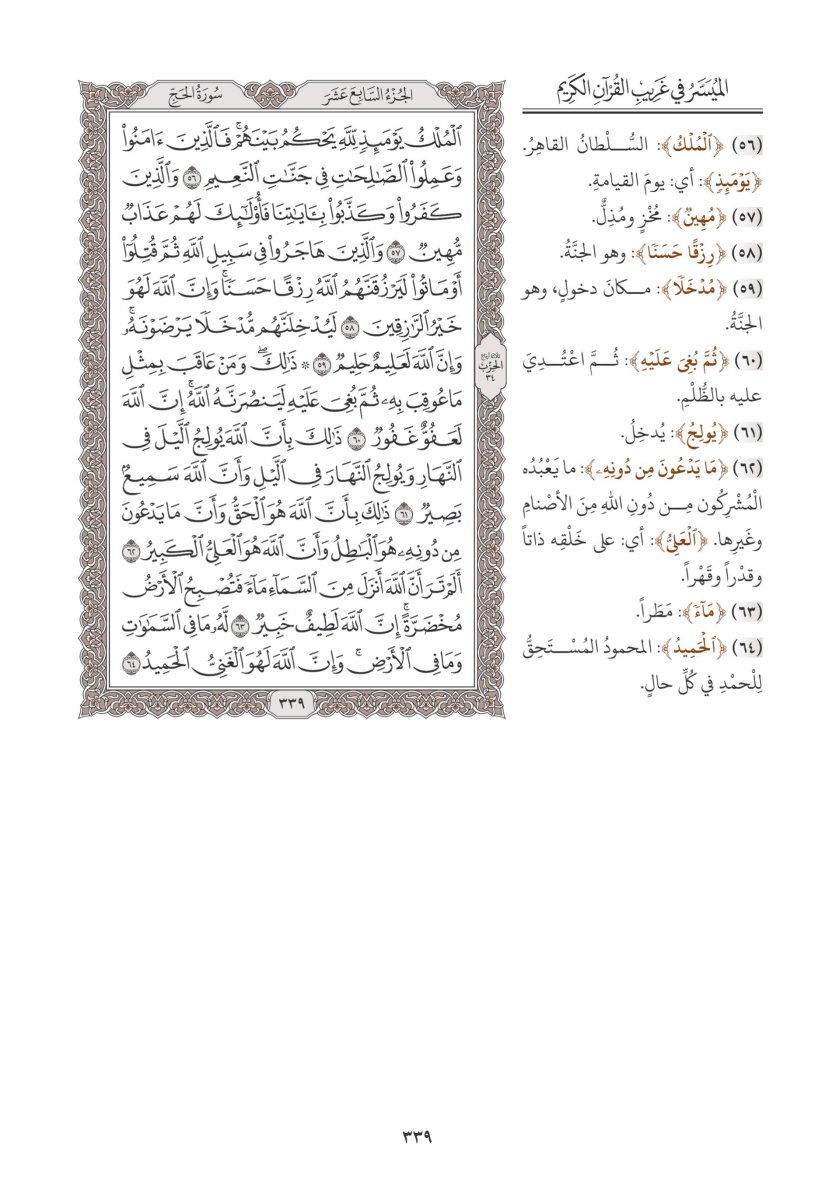 الميُسَّرُ في غَرِيبِ القُرْآنِ الكَرِيم
(٥٦) ﴿ٱلۡمُلۡكُ﴾: السُّلْطانُ القاهِرُ.
﴿يَوۡمَئِذٖ﴾: أي: يومَ القيامةِ.
(٥٧) ﴿مُّهِينٞ﴾: مُخْزٍ ومُذِلٌّ.
(٥٨) ﴿رِزۡقًا حَسَنٗا﴾: وهو الجنَّةُ.
(٥٩) ﴿مُّدۡخَلٗا﴾: مكانَ دخولٍ، وهو
الجنَّةُ.
(٦٠) ﴿ثُمَّ بُغِيَ عَلَيۡهِ﴾: ثُمَّ اعْتُدِيَ
عليه بالظُّلْمِ.
(٦١) ﴿يُولِجُ﴾: يُدخِلُ.
(٦٢) ﴿مَا يَدۡعُونَ مِن دُونِهِۦ﴾: ما يَعْبُدُه
الْمُشْرِكُون مِن دُونِ اللهِ مِنَ الأصْنامِ
وغَيرِها. ﴿ٱلۡعَلِيُّ﴾: أي: على خَلْقِه ذاتاً
وقدْراً وقَهْراً.
(٦٣) ﴿مَآءٗ﴾: مَطَراً.
(٦٤) ﴿ٱلۡحَمِيدُ﴾: المحمودُ المُسْتَحِقُّ
لِلْحمْدِ في كُلِّ حالٍ.
الجُزْءُ السَّابِعَ عَشَرَ
سُورَةُ الحَجِّ
ٱلۡمُلۡكُ يَوۡمَئِذٖ لِّلَّهِ يَحۡكُمُ بَيۡنَهُمۡۚ فَٱلَّذِينَ ءَامَنُواْ
وَعَمِلُواْ ٱلصَّٰلِحَٰتِ فِي جَنَّٰتِ ٱلنَّعِيمِ ٥٦ وَٱلَّذِينَ
كَفَرُواْ وَكَذَّبُواْ بِـَٔايَٰتِنَا فَأُوْلَٰٓئِكَ لَهُمۡ عَذَابٞ
مُّهِينٞ ٥٧ وَٱلَّذِينَ هَاجَرُواْ فِي سَبِيلِ ٱللَّهِ ثُمَّ قُتِلُوٓاْ
أَوۡ مَاتُواْ لَيَرۡزُقَنَّهُمُ ٱللَّهُ رِزۡقًا حَسَنٗاۚ وَإِنَّ ٱللَّهَ لَهُوَ
خَيۡرُ ٱلرَّٰزِقِينَ ٥٨ لَيُدۡخِلَنَّهُم مُّدۡخَلٗا يَرۡضَوۡنَهُۥۚ
وَإِنَّ ٱللَّهَ لَعَلِيمٌ حَلِيمٞ ٥٩ ۞ ذَٰلِكَۖ وَمَنۡ عَاقَبَ بِمِثۡلِ
مَا عُوقِبَ بِهِۦ ثُمَّ بُغِيَ عَلَيۡهِ لَيَنصُرَنَّهُ ٱللَّهُۚ إِنَّ ٱللَّهَ
لَعَفُوٌّ غَفُورٞ ٦٠ ذَٰلِكَ بِأَنَّ ٱللَّهَ يُولِجُ ٱلَّيۡلَ فِي
ٱلنَّهَارِ وَيُولِجُ ٱلنَّهَارَ فِي ٱلَّيۡلِ وَأَنَّ ٱللَّهَ سَمِيعُۢ
بَصِيرٞ ٦١ ذَٰلِكَ بِأَنَّ ٱللَّهَ هُوَ ٱلۡحَقُّ وَأَنَّ مَا يَدۡعُونَ
مِن دُونِهِۦ هُوَ ٱلۡبَٰطِلُ وَأَنَّ ٱللَّهَ هُوَ ٱلۡعَلِيُّ ٱلۡكَبِيرُ ٦٢
أَلَمۡ تَرَ أَنَّ ٱللَّهَ أَنزَلَ مِنَ ٱلسَّمَآءِ مَآءٗ فَتُصۡبِحُ ٱلۡأَرۡضُ
مُخۡضَرَّةًۚ إِنَّ ٱللَّهَ لَطِيفٌ خَبِيرٞ ٦٣ لَّهُۥ مَا فِي ٱلسَّمَٰوَٰتِ
وَمَا فِي ٱلۡأَرۡضِۚ وَإِنَّ ٱللَّهَ لَهُوَ ٱلۡغَنِيُّ ٱلۡحَمِيدُ ٦٤
الحِزْب
٣٤
٣٣٩
٣٣٩